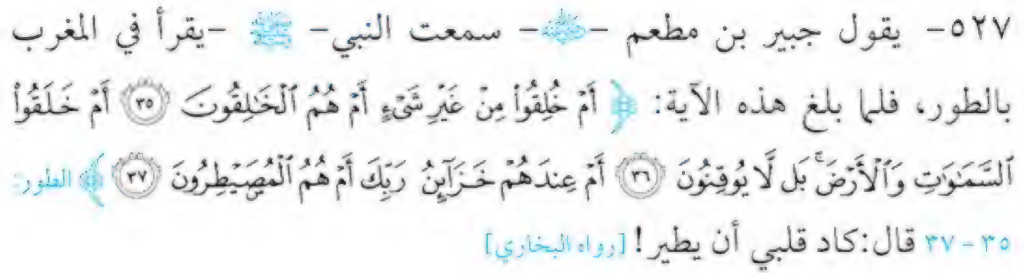 ٥٢٧- يقول جبير بن مطعم -رضي الله عنه- سمعت النبي- ﷺ -يقرأ في المغرب
بالطور، فلما بلغ هذه الآية: ﴿ أَمْ خُلِقُوا۟ مِنْ غَيْرِ شَىْءٍ أَمْ هُمُ ٱلْخَٰلِقُونَ ٣٥ أَمْ خَلَقُوا۟
ٱلسَّمَٰوَٰتِ وَٱلْأَرْضَ ۚ بَل لَّا يُوقِنُونَ ٣٦ أَمْ عِندَهُمْ خَزَآئِنُ رَبِّكَ أَمْ هُمُ ٱلْمُصَۣيْطِرُونَ ٣٧ ﴾ الطور:
٣٥ - ٣٧ قال:كاد قلبي أن يطير! [رواه البخاري]